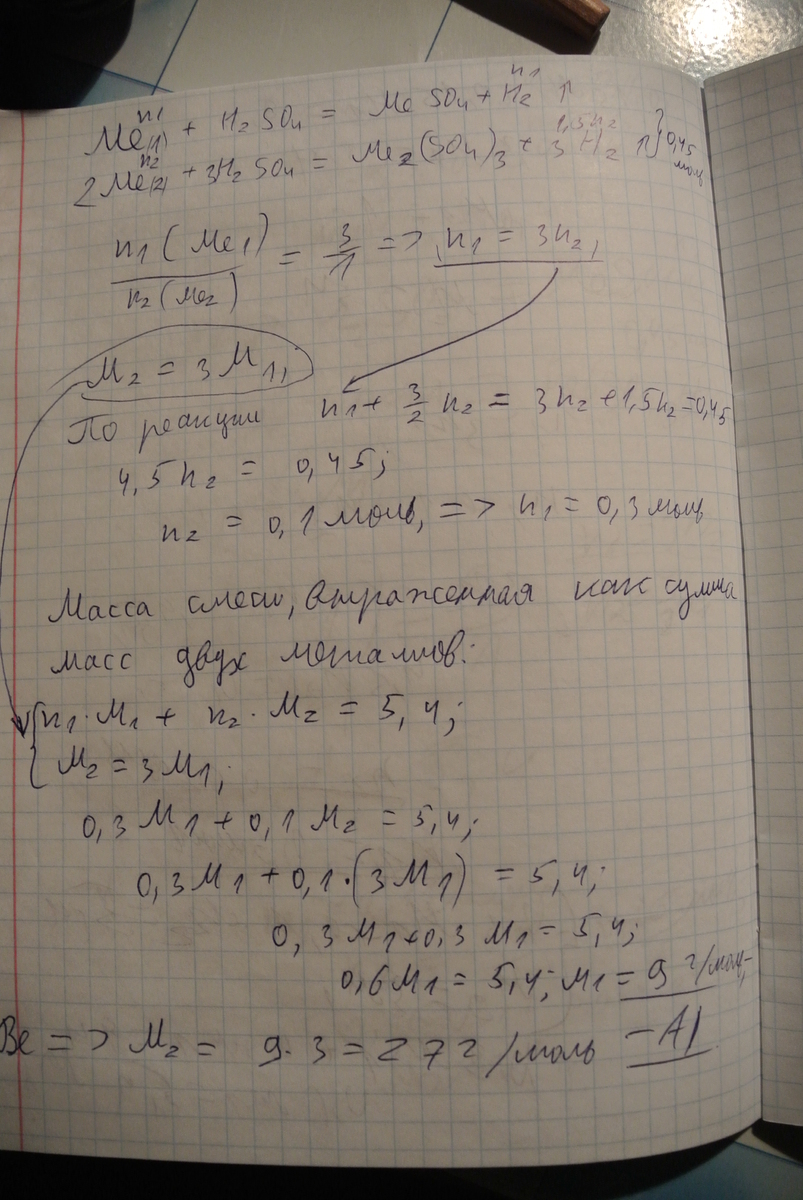 n1 n1
Me(1) + H2SO4 = MeSO4 + H2 ↑
n2 1,5n2
2Me(2) + 3H2SO4 = Me2(SO4)3 + 3H2 ↑ } 0,45 моль
n1(Me1) / n2(Me2) = 3/1 => n1 = 3n2,
M2 = 3M1,
По реакции n1 + 3/2 n2 = 3n2 + 1,5n2 = 0,45
4,5n2 = 0,45;
n2 = 0,1 моль, => n1 = 0,3 моль
Масса смеси, выраженная как сумма
масс двух металлов:
{ n1·M1 + n2·M2 = 5,4;
M2 = 3M1,
0,3M1 + 0,1M2 = 5,4;
0,3M1 + 0,1·(3M1) = 5,4;
0,3M1 + 0,3M1 = 5,4;
0,6M1 = 5,4; M1 = 9 г/моль -
Be => M2 = 9·3 = 27 г/моль - Al